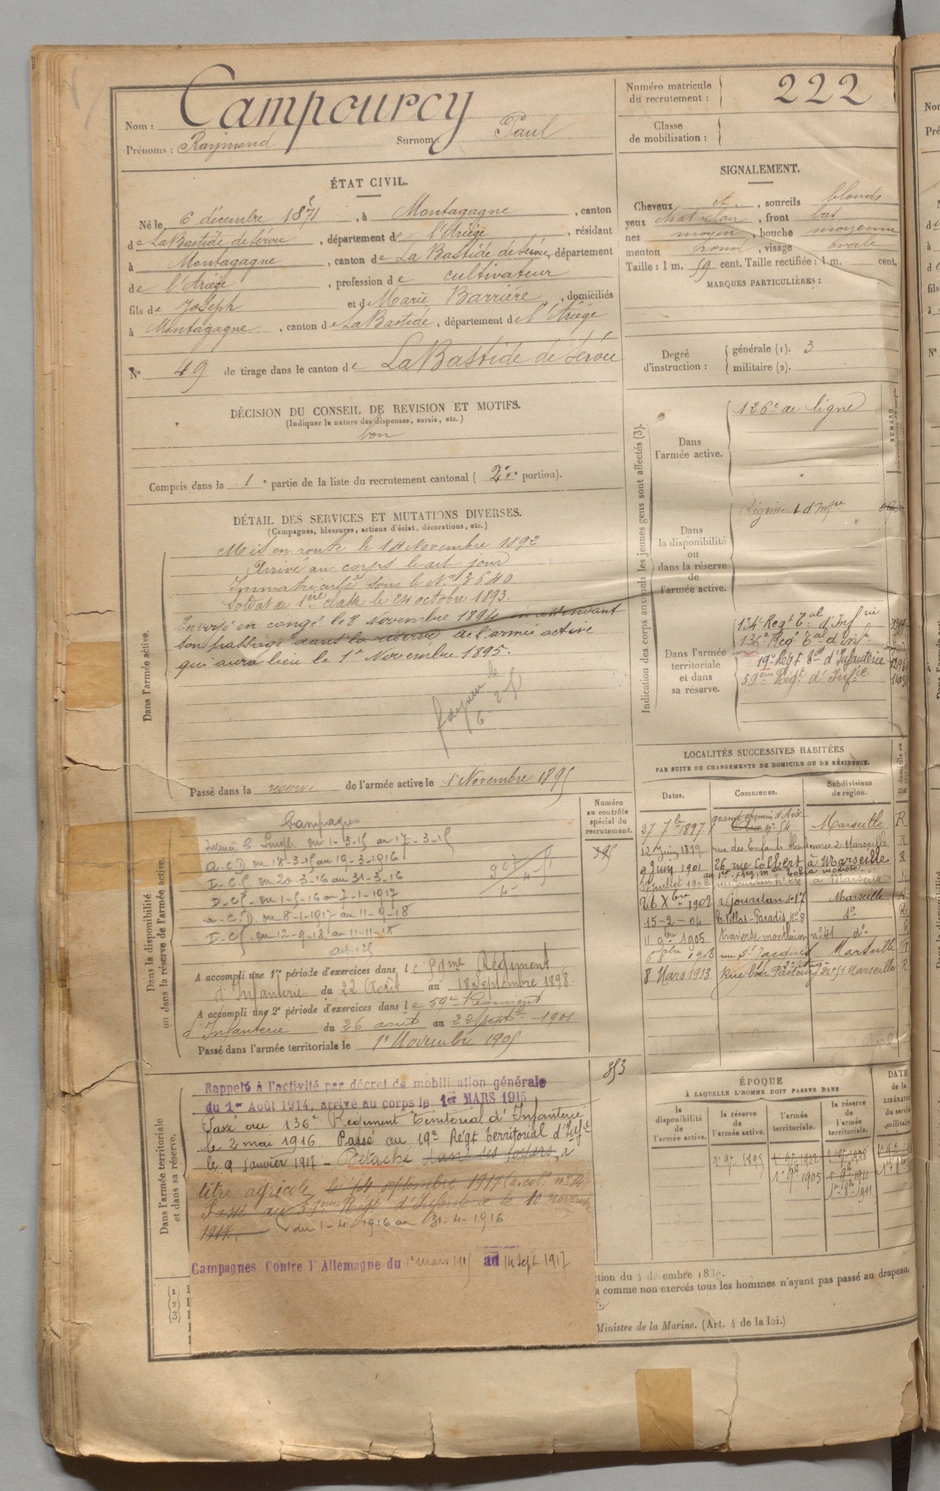 Nom : Campourcy
Prénoms : Raymond Surnom : Paul
Numéro matricule du recrutement : 222
Classe de mobilisation :
ÉTAT CIVIL.
Né le 6 décembre 1871, à Montagagne, canton
de La Bastide de Sérou, département de l'Ariège, résidant
à Montagagne, canton de La Bastide de Sérou, département
de l'Ariège, profession de cultivateur
fils de Joseph et de Marie Barrière, domiciliés
à Montagagne, canton de La Bastide, département de l'Ariège
N° 49 de tirage dans le canton de La Bastide de Sérou
SIGNALEMENT.
Cheveux et, sourcils blonds
yeux chat clair, front bas
nez moyen, bouche moyenne
menton rond, visage ovale
Taille : 1 m. 59 cent. Taille rectifiée : 1 m. cent.
MARQUES PARTICULIÈRES :
Degré d'instruction : générale (1). 3
militaire (2).
DÉCISION DU CONSEIL DE REVISION ET MOTIFS.
(Indiquer la nature des dispenses, sursis, etc.)
bon
Compris dans la 1e partie de la liste du recrutement cantonal (2e portion).
DÉTAIL DES SERVICES ET MUTATIONS DIVERSES.
(Campagnes, blessures, actions d'éclat, décorations, etc.)
Dans l'armée active.
Mis en route le 14 Novembre 1892
Arrivé au corps le dit jour
Immatriculé sous le No 3640
Soldat de 1ère classe le 24 octobre 1893
Envoyé en congé le 8 novembre 1894 en attendant
son passage dans la réserve de l'armée active
qui aura lieu le 1er Novembre 1895.
Passé dans la réserve de l'armée active le 1er Novembre 1895
Indication des corps auxquels les jeunes gens sont affectés (3).
Dans l'armée active.
126e de ligne
Dans la disponibilité ou dans la réserve de l'armée active.
Régiment d'Infie
Dans l'armée territoriale et dans sa réserve.
134e Régt Tal d'Infie
136e Regt Tal d'Inf.
19e Régt Tal d'Infanterie
59ème Régt d'Infie
Dans la disponibilité ou dans la réserve de l'armée active.
Numéro au contrôle spécial du recrutement.
Campagnes
Intérieur du 1-3-15 au 17-3-15
a.C.D. du 18-3-15 au 19-3-1916
I-C.S. du 20-3-16 au 31-3-16
D.C.S. du 1-5-16 au 7-1-1917
a.C.D. du 8-1-1917 au 11-9-18
I-C.S. du 12-9-18 au 11-11-18
A accompli une 1re période d'exercices dans le 59me Régiment
d'Infanterie du 22 Août au 18 Septembre 1898.
A accompli une 2e période d'exercices dans le 59e Régiment
d'Infanterie du 26 août au 22 Septbre 1901
Passé dans l'armée territoriale le 1er Novembre 1905
LOCALITÉS SUCCESSIVES HABITÉES
PAR SUITE DE CHANGEMENTS DE DOMICILE OU DE RÉSIDENCE.
Dates. Communes. Subdivisions de région.
27 7bre 1897 grand chemin d'Aix 54 Marseille R
12 Juin 1899 Marseille R
9 Juin 1901 26 rue Colbert à Marseille R
Juillet 1902 à Marseille
26 Xbre 1902 Marseille
15-2-04 Paradis, n°8 do
11 9bre 1905 traverse n°41 do
1908 rue St Jacques Marseille
8 Mars 1913 Rue Pasteur Marseille R
853
ÉPOQUE
À LAQUELLE L'HOMME DOIT PASSER DANS
la disponibilité de l'armée active.
la réserve de l'armée active.
l'armée territoriale.
la réserve de l'armée territoriale.
DATE de la LIBÉRATION du service militaire
1er 9bre 1895
1er 9bre 1905
Dans l'armée territoriale et dans sa réserve.
Rappelé à l'activité par décret de mobilisation générale
du 1er Août 1914, arrivé au corps le 1er MARS 1915
Passé au 136e Régiment Territorial d'Infanterie
le 2 mai 1916 Passé au 19e Régt Territorial d'Infie
le 9 janvier 1917 - Détaché dans ses foyers, à
titre agricole le 14 septembre 1917
Passé au 59ème Régt d'Infanterie le 10 novembre
1917.
du 1-4-1916 au 31-4-1916
Campagnes Contre l'Allemagne du 1er mars 1915 au 14 Sept 1917
a comme non exercés tous les hommes n'ayant pas passé au drapeau
Ministre de la Marine. (Art. 4 de la loi.)
(1)
(2)
(3)